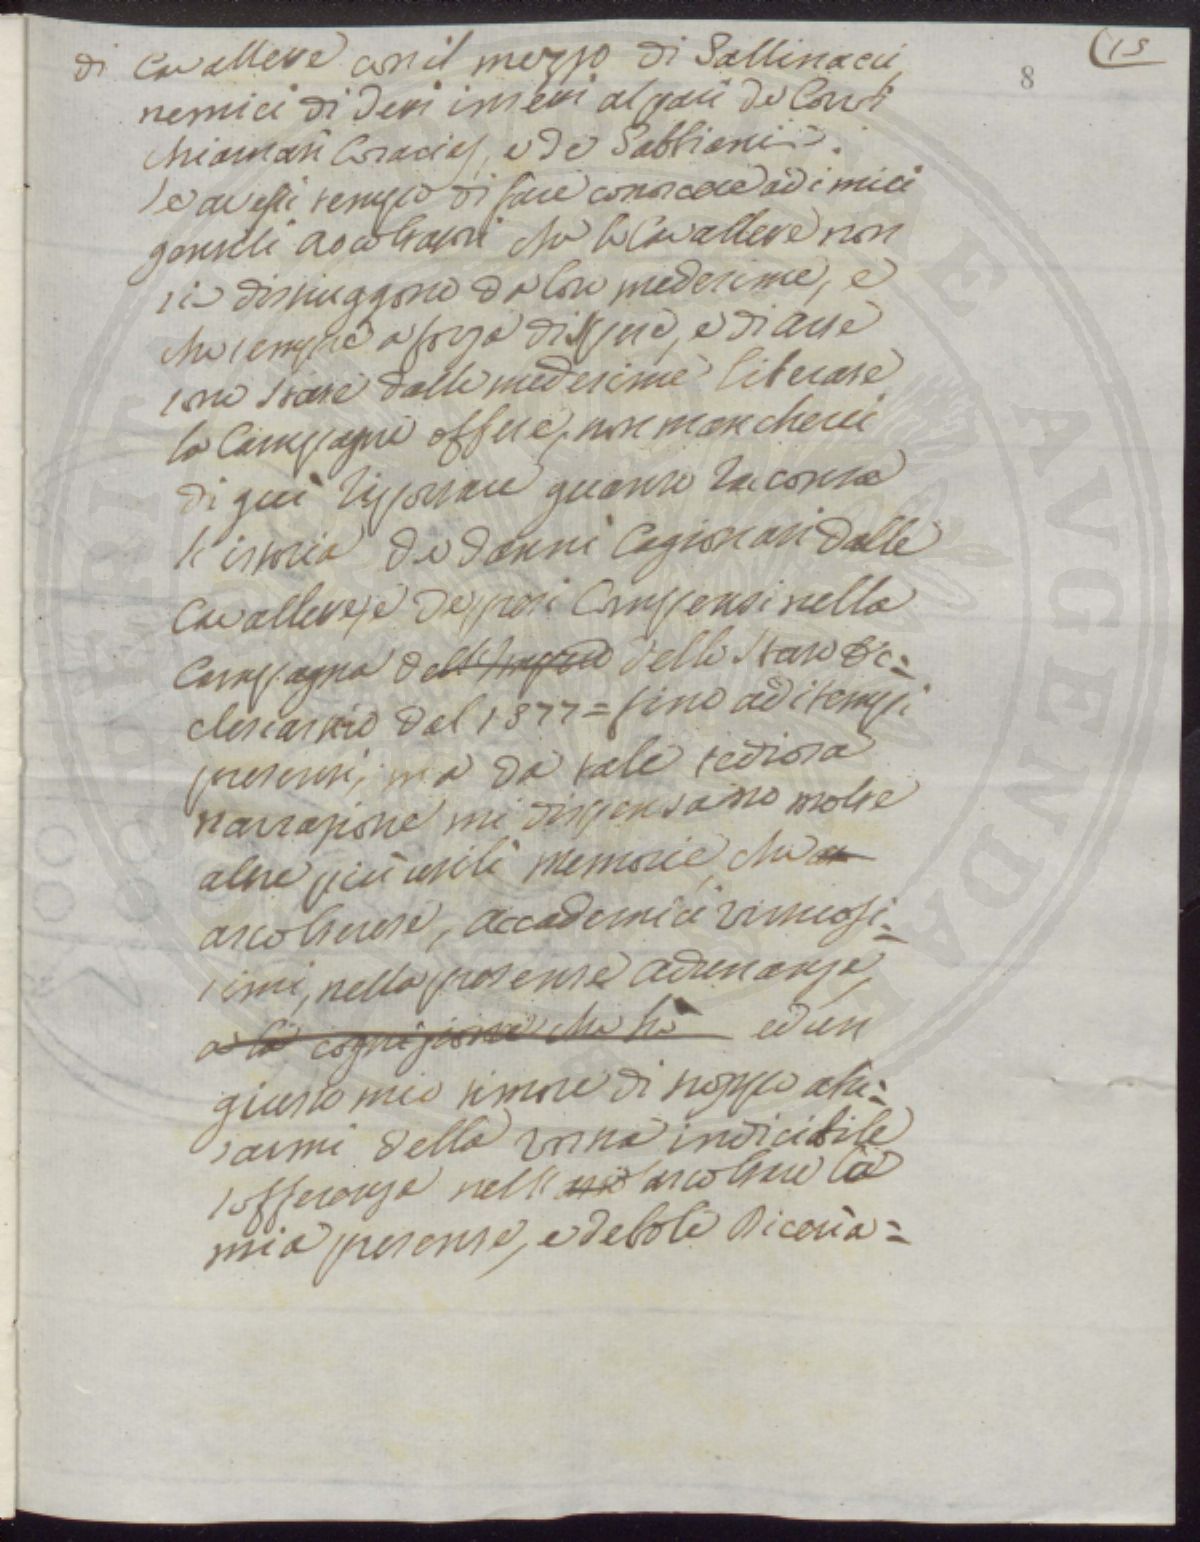 (15
8
di Cavallette con il mezzo di Gallinacci
nemici di detti insetti al pari de Corvi
chiamati Coracias, e de Gabbiani =.
Se avessi tempo di fare conoscere ad i miei
gentili ascoltatori che le Cavallette non
si distruggono da loro medesime, e
che sempre a forza di spese, e di arte
sono state dalle medesime liberate
le Campagne offese, non mancherei
di quì riportare quanto racconta
l'istoria de danni cagionati dalle
Cavallette, e de presi Compensi nelle
Campagne dell' Impero dello Stato Ec=
clesiastico dal 1577 = fino ad i tempi
presenti, ma da tale tediosa
narrazione mi dispensano molte
altre più utili memorie, che
ascolterete, Accademici virtuosis=
simi, nella presente adunanza,
e la cognizione che hò ed un
giusto mio timore di troppo abu=
sarmi della vostra indicibile
sofferenza nell' ascoltare la
mia presente, e debole Diceria =